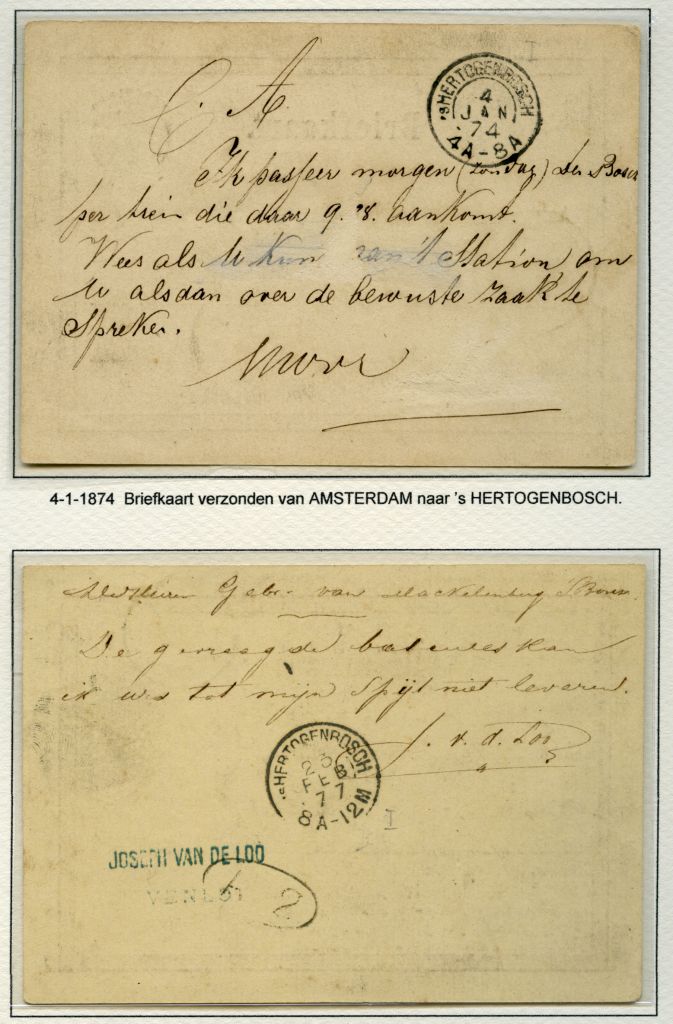 C. A
'SHERTOGENBOSCH
4
JAN
74
4A-8A
Ik passeer morgen (Zondag) Den Bosch
per trein die daar 9.28. aankomt.
Wees als U kun aan't Station om
U alsdan over de bewuste zaak te
Spreken.
4-1-1874 Briefkaart verzonden van AMSTERDAM naar 's HERTOGENBOSCH.
Gebr. van Mackelenberg
De gevraagde balenles kan
ik U tot mijn Spijt niet leveren.
J. v. d. Loo
'SHERTOGENBOSCH
23
FEB
77
8A-12M
I
JOSEPH VAN DE LOO
VENLO
2